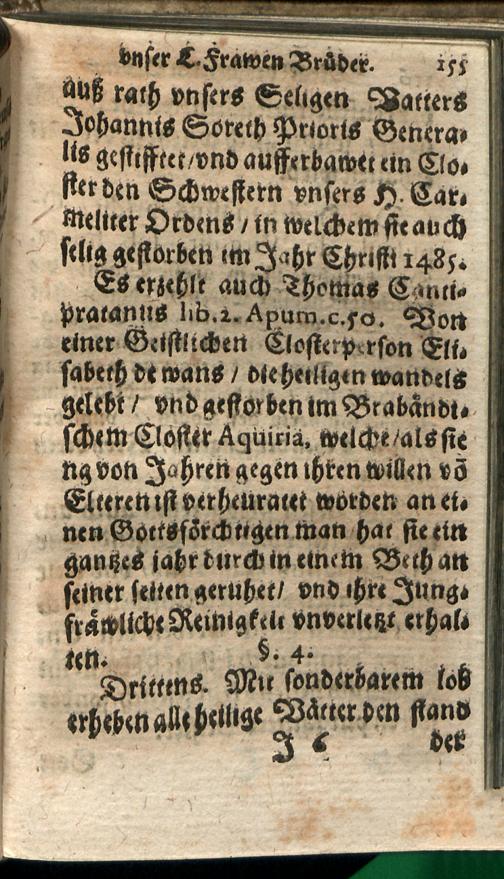 vnser L. Frawen Brüder. 155
auß rath vnsers Seligen Vatters
Johannis Soreth Prioris Genera-
lis gestifftet/vnd aufferbawet ein Clo-
ster den Schwestern vnsers H. Car-
meliter Ordens / in welchem sie auch
selig gestorben im Jahr Christi 1485.
Es erzehlt auch Thomas Canti-
pratanus lib.2. Apum.c.50. Von
einer Geistlichen Closterperson Eli-
sabeth de wans / die heiligen wandels
gelebt / vnd gestorben im Brabändi-
schem Closter Aquiria, welche/als sie
ng von Jahren gegen ihren willen võ
Elteren ist verheuratet worden an ei-
nen Gottsförchtigen man hat sie ein
gantzes jahr durch in einem Beth an
seiner seiten geruhet/ vnd ihre Jung-
fräwliche Reinigkeit vnverletzt erhal-
ten. §. 4.
Drittens. Mit sonderbarem lob
erheben alle heilige Vätter den stand
J 6 der